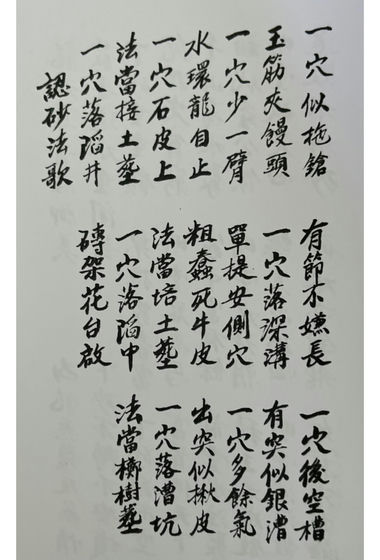 一穴似拖鎗 有節不嫌長 一穴後空槽
玉筋夾饅頭 一穴落深溝 有突似銀漕
一穴少一臂 單提安側穴 一穴多餘氣
水環龍自止 粗蠢死牛皮 出突似揪皮
一穴石皮上 法當培土塟 一穴落漕坑
法當接土塟 一穴落陷中 法當樹塟
一穴落陷井 磚架花台啟
認砂法歌